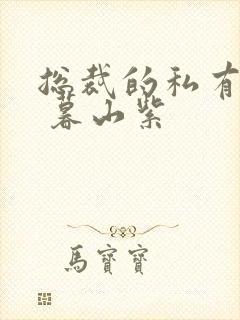 总裁的私有
暮山紫
馬寶寶